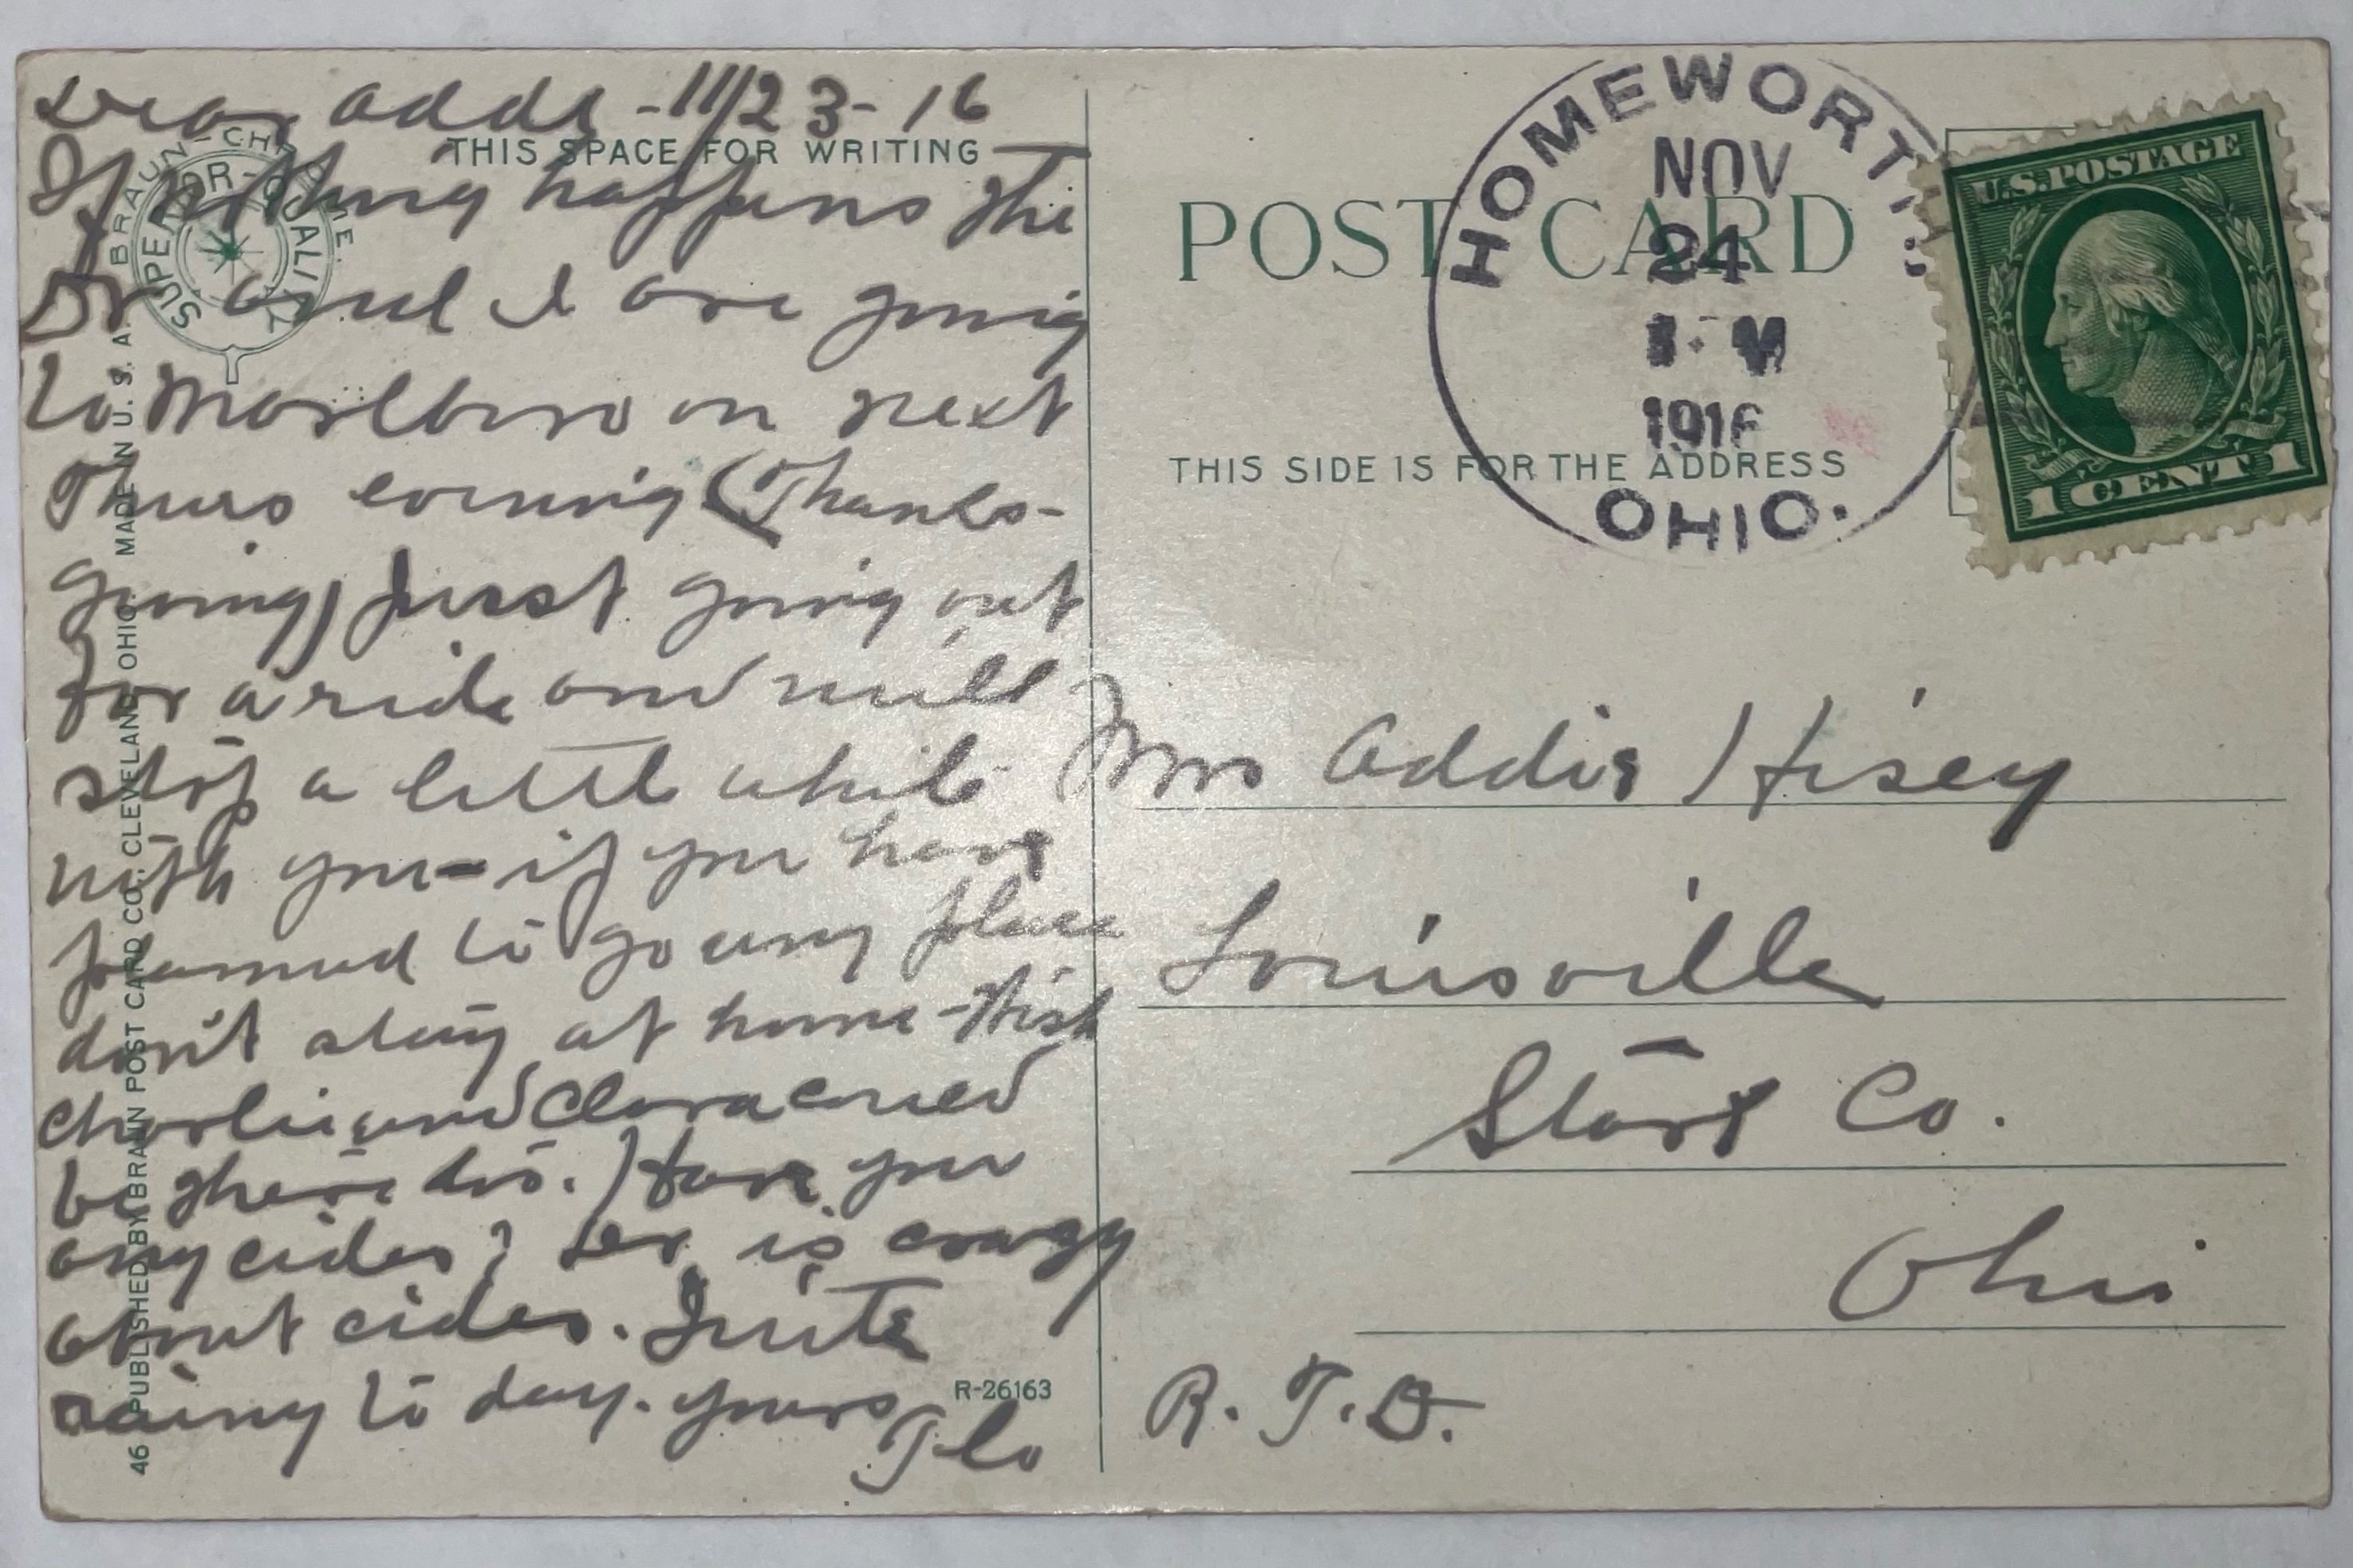 Dear Adda - 11/23-16
THIS SPACE FOR WRITING
If nothing happens the
Dr and I are going
to Marlboro on next
Thurs evening (Thanks-
giving) Just going out
for a ride and will
stop a little while
with you - if you have
planned to go any place
don't stay at home - Wish
Charlie and Clara could
be there too. Have you
any cider? Dr is crazy
about cider. Quite
rainy to day. Yours
Flo
BRAUN-CHROME.
SUPERIOR-QUALITY
46 PUBLISHED BY BRAUN POST CARD CO., CLEVELAND, OHIO. MADE IN U. S. A.
R-26163
POST CARD
HOMEWORTH
NOV
24
M
1916
OHIO.
U.S. POSTAGE
1 CENT 1
THIS SIDE IS FOR THE ADDRESS
Mrs Addie Hisey
Louisville
Stark Co.
Ohio
R. F. D.